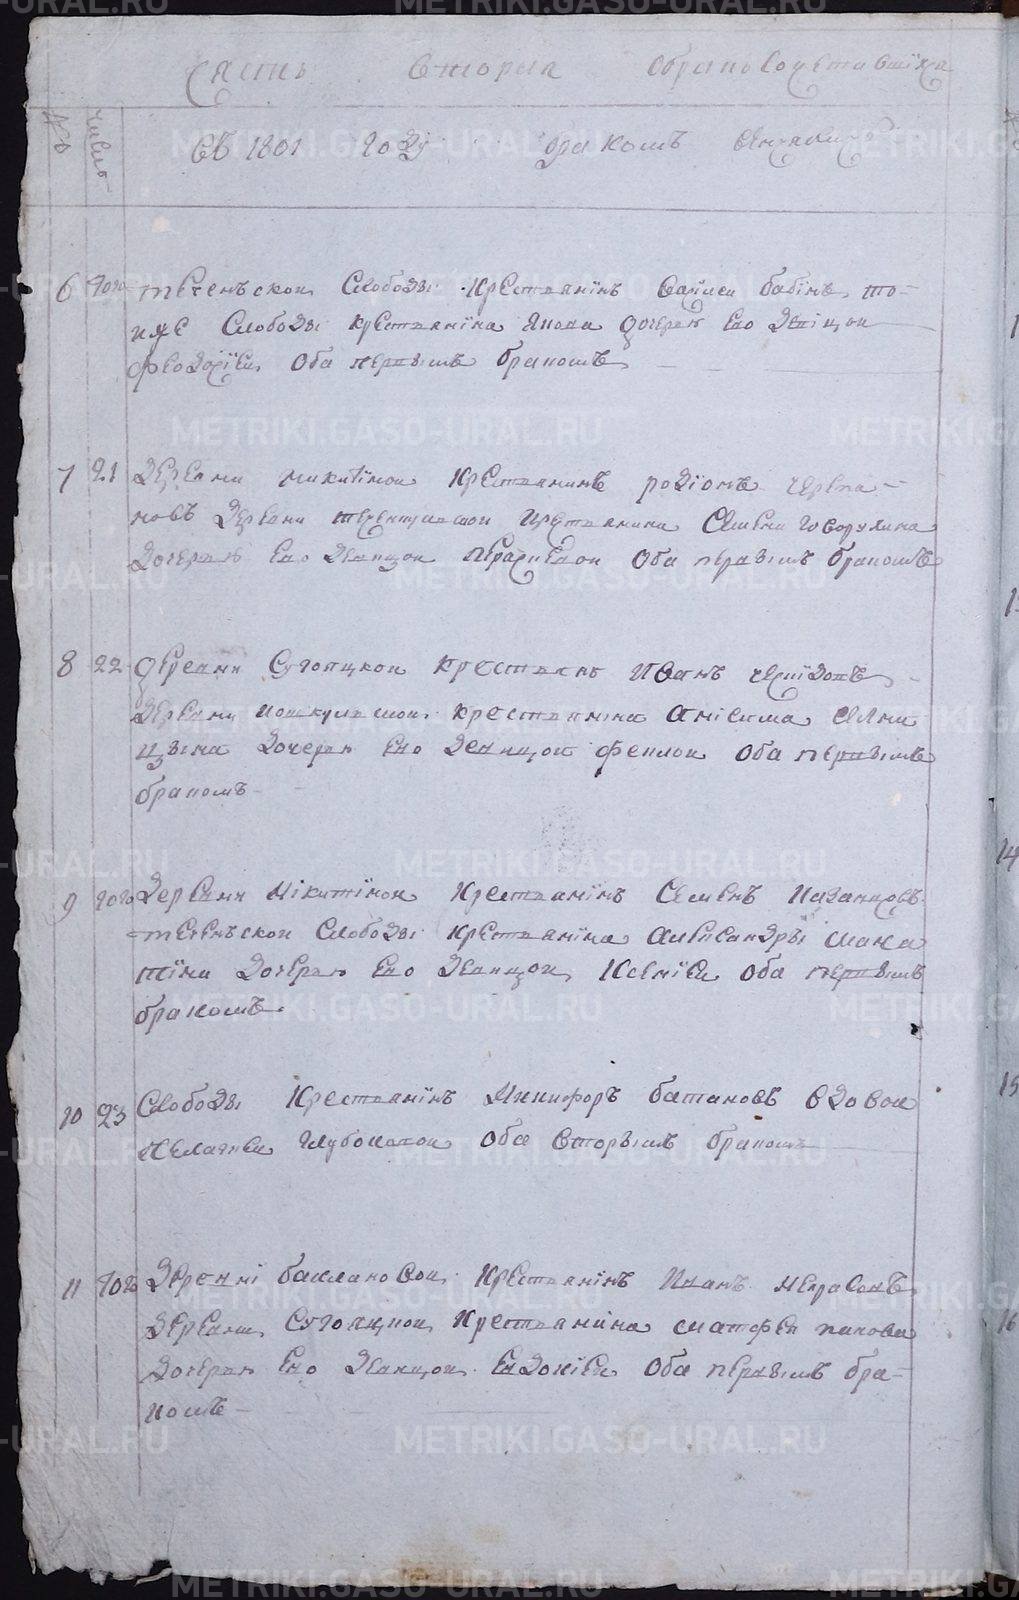 Часть вторая о бракосочетавшихся
№ число въ 1801 году бракомъ
6 того теченской слободы крестьянинъ бабинъ то-
иже слободы крестьянина якова дочерью ево девицой
феодосiей оба первымъ бракомъ
7 21 деревни никитiной крестьянинъ родiонъ черепа-
новъ деревни крестьянина семена говорухина
дочерью ево девицой параскевой оба первымъ бракомъ
8 22 деревни сугояцкой крестьянъ иванъ
деревни крестьянина анiсима
дочерью ево девицой феклой оба первымъ
бракомъ
9 того деревни нiкитiной крестьянiнъ семенъ казанцовъ
теченской слободы крестьянiна александры
дочерью ево девицой ксенiей оба первымъ
бракомъ
10 23 слободы крестьянiнъ никифоръ батановъ вдовой
пелагией глубоковой оба вторымъ бракомъ
11 того деревнi баклановой крестьянiнъ иванъ некрасовъ
деревни сугояцкой крестьянина матфея
дочерью ево девицой евдокiей оба первымъ бра-
комъ
METRIKI.GASO-URAL.RU